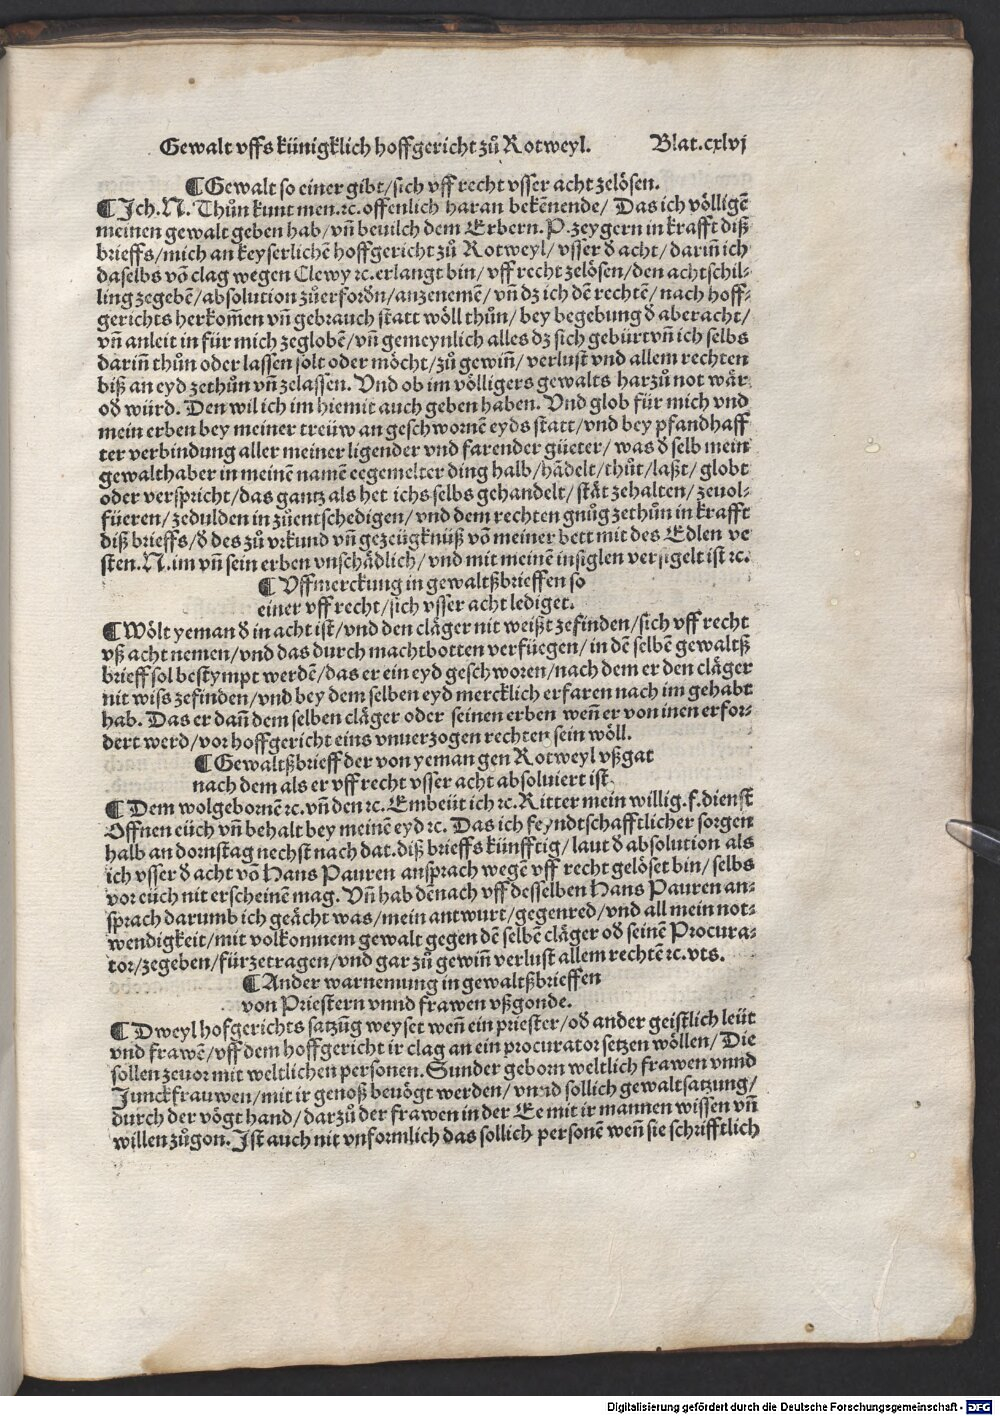 Gewalt vffs künigklich hoffgericht zů Rotweyl. Blat.cxlvj
¶Gewalt so einer gibt/sich vff recht vsser acht zelösen.
¶Jch.N. Thůn kunt men.⁊c.offenlich haran bekēnende/ Das ich völligē
meinen gewalt geben hab/vn̄ beuilch dem Erbern.P.zeygern in krafft diß
brieffs/mich an keyserlichē hoffgericht zů Rotweyl/vsser đ acht/darin̄ ich
daselbs vō clag wegen Clewy ⁊c.erlangt bin/vff recht zelösen/den achtschil-
ling zegebē/absolution zůerfordn/anzenemē/vn̄ dz ich dē rechtē/nach hoff-
gerichts herkom̄en vn̄ gebrauch statt wöll thůn/bey begebung đ aberacht/
vn̄ anleit in für mich zeglobē/vn̄ gemeynlich alles dz sich gebürt vn̄ ich selbs
darin̄ thůn oder lassen solt oder möcht/zů gewin̄/verlust vnd allem rechten
biß an eyd zethůn vn̄ zelassen. Vnd ob im völligers gewalts harzů not wär
ođ würd. Den wil ich im hiemit auch geben haben. Vnd glob für mich vnd
mein erben bey meiner treüw an geschwornē eyds statt/vnd bey pfandhaff
ter verbindung aller meiner ligender vnd farender güeter/was đ selb mein
gewalthaber in meinē namē eegemelter ding halb/hādelt/thůt/laßt/globt
oder verspricht/das gantz als het ichs selbs gehandelt/stät zehalten/zeuol-
füeren/zedulden in zůentschedigen/vnd dem rechten gnůg zethůn in krafft
diß brieffs/đ des zů vrkund vn̄ gezeügknüß vō meiner bett mit des Edlen ve
sten.N.im vn̄ sein erben vnschädlich/vnd mit meinē insiglen versigelt ist ⁊c.
¶Vffmerckung in gewaltßbrieffen so
einer vff recht/sich vsser acht lediget.
¶Wölt yeman đ in acht ist/vnd den cläger nit weißt zefinden/sich vff recht
vß acht nemen/vnd das durch machtbotten verfüegen/in dē selbē gewaltß
brieff sol bestympt werdē/das er ein eyd geschworen/nach dem er den cläger
nit wiss zefinden/vnd bey dem selben eyd mercklich erfaren nach im gehabt
hab. Das er dan̄ dem selben cläger oder seinen erben wen̄ er von inen erfor-
dert werd/vor hoffgericht eins vnuerzogen rechten sein wöll.
¶Gewaltßbrieff der von yeman gen Rotweyl vßgat
nach dem als er vff recht vsser acht absoluiert ist.
¶Dem wolgebornē ⁊c.vn̄ den ⁊c.Embeüt ich ⁊c.Ritter mein willig.f.dienst
Öffnen eüch vn̄ behalt bey meinē eyd ⁊c. Das ich feyndtschafftlicher sorgen
halb an dornstag nechst nach dat.diß brieffs künfftig/laut đ absolution als
ich vsser đ acht vō Hans Pauren ansprach wegē vff recht gelöset bin/selbs
vor eüch nit erscheinē mag. Vn̄ hab dēnach vff desselben Hans Pauren an-
sprach darumb ich geächt was/mein antwurt/gegenred/vnd all mein not-
wendigkeit/mit volkomnem gewalt gegen dē selbē cläger ođ seinē Procura-
tor/zegeben/fürzetragen/vnd gar zů gewin̄ verlust allem rechtē ⁊c.vts.
¶Ander warnenung in gewaltßbrieffen
von Priestern vnnd frawen vßgonde.
¶Dweyl hofgerichts satzūg weyset wen̄ ein priester/ođ ander geistlich leüt
vnd frawē/vff dem hoffgericht ir clag an ein procurator setzen wöllen/Die
sollen zeuor mit weltlichen personen. Sunder geborn weltlich frawen vnnd
Junckfrauwen/mit ir genoß beuögt werden/vnnd sollich gewaltsatzung/
durch der vögt hand/darzů der frawen in der Ee mit ir mannen wissen vn̄
willen zůgon. Ist auch nit vnformlich das sollich personē wen̄ sie schrifftlich
Digitalisierung gefördert durch die Deutsche Forschungsgemeinschaft - DFG